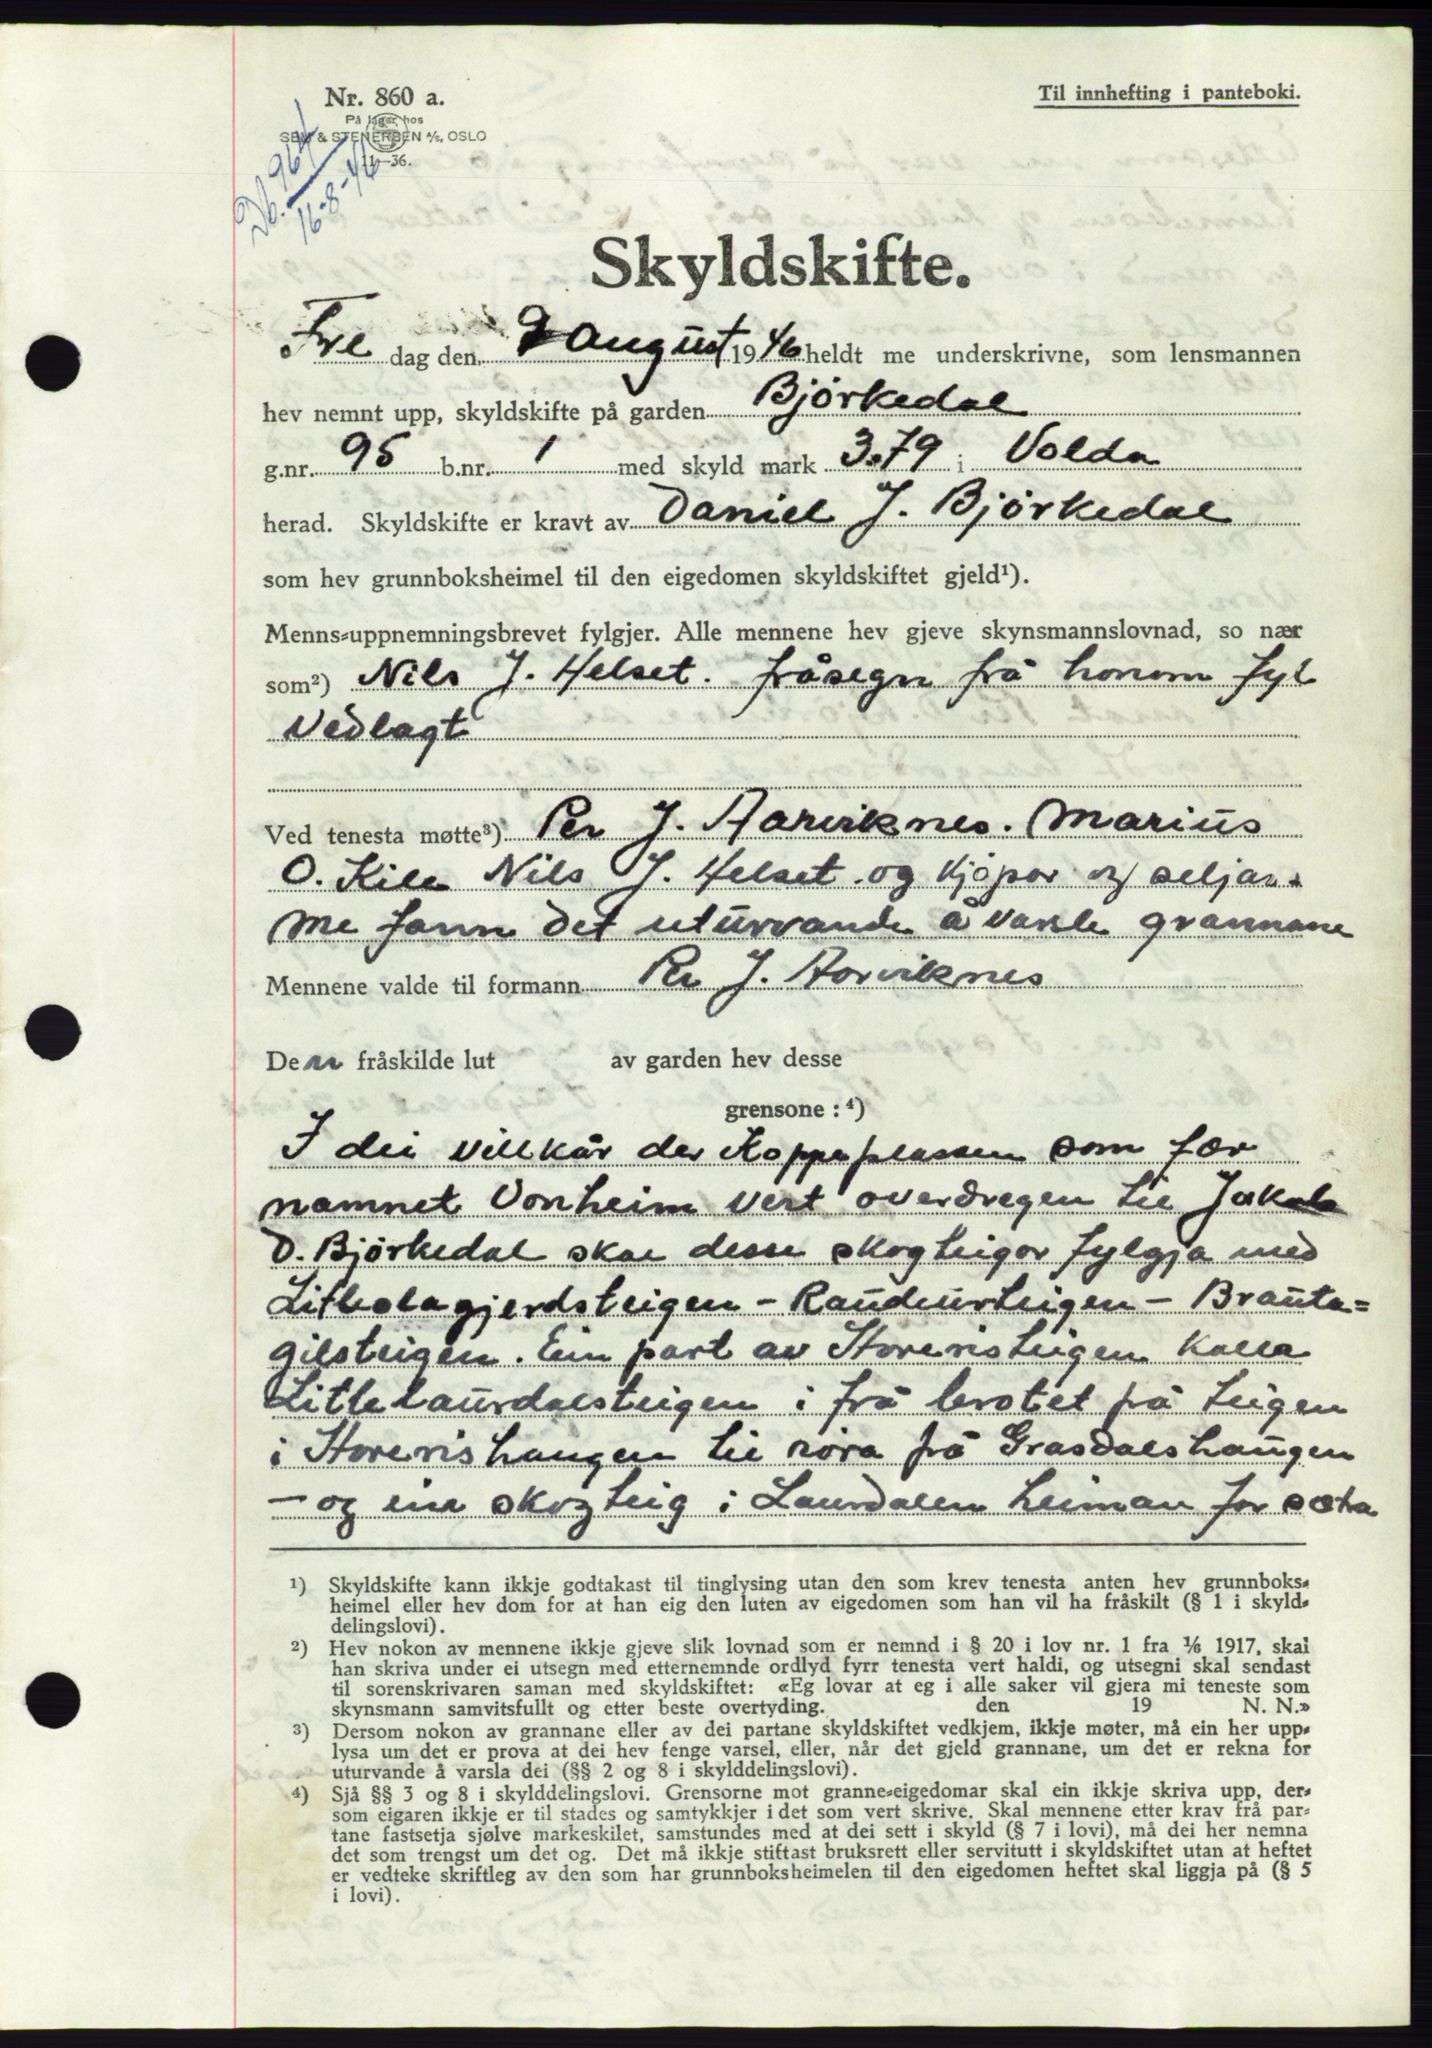 Nr. 860 a.
Til innhefting i panteboki.
På lager hos
SEM & STENERSEN A/S, OSLO
11-36.
Db. 964/
16-8-46
Skyldskifte.
Fre dag den 9 august 1946 heldt me underskrivne, som lensmannen
hev nemnt upp, skyldskifte på garden Bjørkedal
g.nr. 95 b.nr. 1 med skyld mark 3.79 i Volda
herad. Skyldskifte er kravt av Daniel J. Bjørkedal
som hev grunnboksheimel til den eigedomen skyldskiftet gjeld¹).
Menns=uppnemningsbrevet fylgjer. Alle mennene hev gjeve skynsmannslovnad, so nær
som²) Nils J. Helset. fråsegn frå honom fyl
vedlagt
Ved tenesta møtte³) Per J. Aarviknes. Marius
O. Kile Nils J. Helset. og kjøpar og seljar.
Me fann det uturvande å varsle grannane
Mennene valde til formann Per J. Aarviknes
Den fråskilde lut av garden hev desse
grensone : ⁴)
I dei villkår der Koppeplassen som fær
namnet Vonheim vert overdregen til Jakob
D. Bjørkedal skal desse skogteigar fylgja med
Litleolagjerdsteigen - Raudeurteigen - Brauta=
gilsteigen. Ein part av Storeristeigen kalla
Litlelaurdalsteigen i frå brotet på teigen
i Storerishaugen til nöra på Grasdalshaugen
— og ein skogteig i Laurdalen heiman for sætra
¹) Skyldskifte kann ikkje godtakast til tinglysing utan den som krev tenesta anten hev grunnboks=
heimel eller hev dom for at han eig den luten av eigedomen som han vil ha fråskilt (§ 1 i skyld=
delingslovi).
²) Hev nokon av mennene ikkje gjeve slik lovnad som er nemnd i § 20 i lov nr. 1 fra 1/6 1917, skal
han skriva under ei utsegn med etternemnde ordlyd fyrr tenesta vert haldi, og utsegni skal sendast
til sorenskrivaren saman med skyldskiftet: «Eg lovar at eg i alle saker vil gjera mi teneste som
skynsmann samvitsfullt og etter beste overtyding. den 19 N. N.»
³) Dersom nokon av grannane eller av dei partane skyldskiftet vedkjem, ikkje møter, må ein her upp=
lysa um det er prova at dei hev fenge varsel, eller, når det gjeld grannane, um det er rekna for
uturvande å varsla dei (§§ 2 og 8 i skylddelingslovi).
⁴) Sjå §§ 3 og 8 i skylddelingslovi. Grensorne mot granne=eigedomar skal ein ikkje skriva upp, der=
som eigaren ikkje er til stades og samtykkjer i det som vert skrive. Skal mennene etter krav frå par=
tane fastsetja sjølve markeskilet, samstundes med at dei sett i skyld (§ 7 i lovi), må dei her nemna
det som trengst um det og. Det må ikkje stiftast bruksrett eller servitutt i skyldskiftet utan at heftet
er vedteke skriftleg av den som har grunnboksheimelen til den eigedomen heftet skal liggja på (§ 5
i lovi).